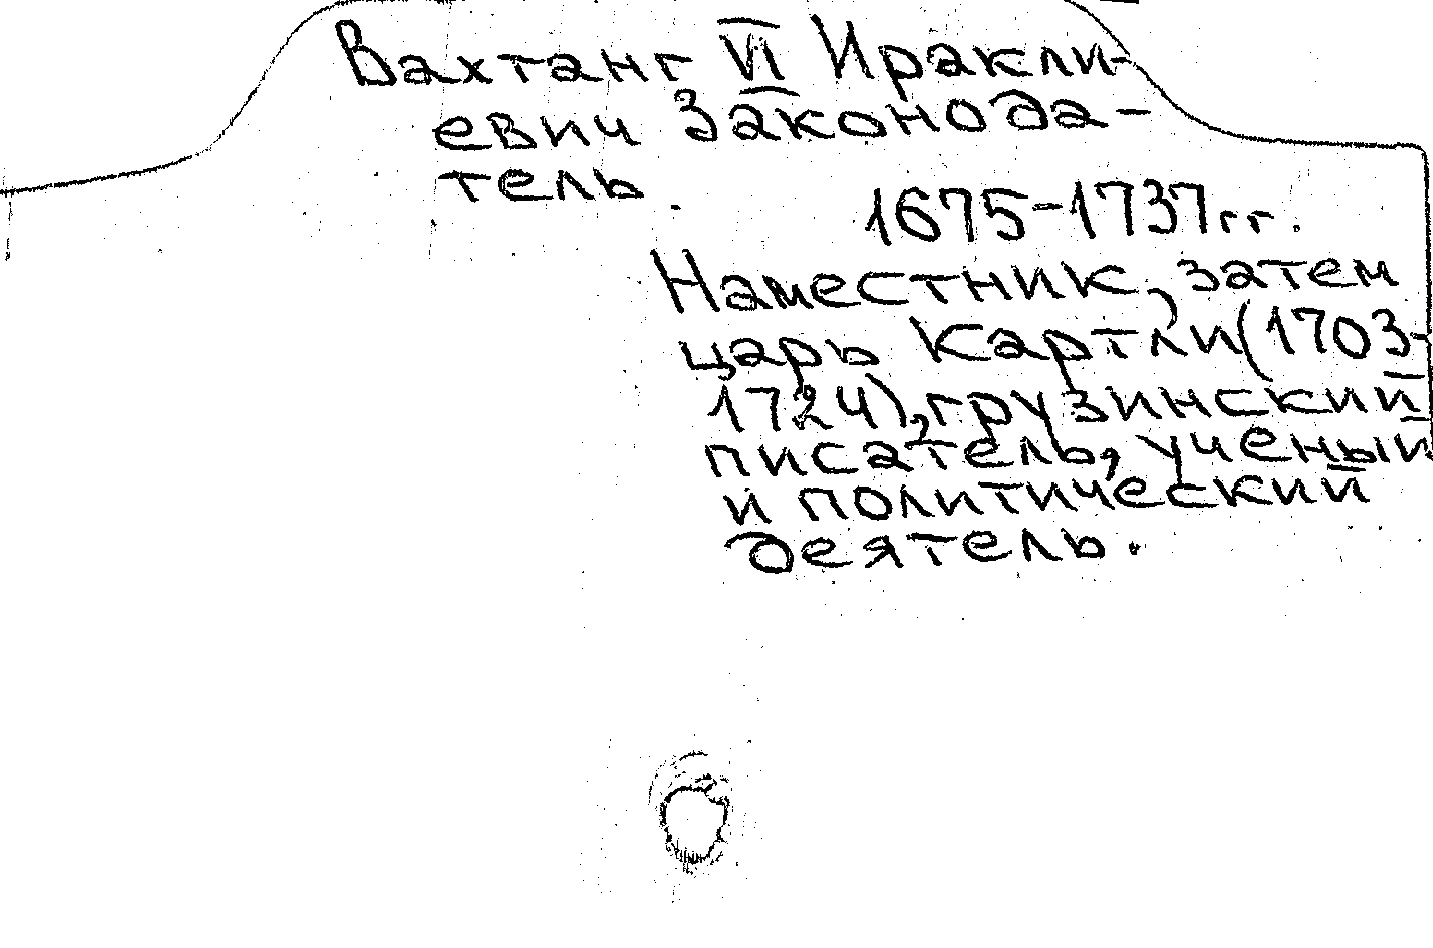 Вахтанг VI Иракли-
евич Законода-
тель.
1675-1737гг.
Наместник, затем
царь Картли(1703-
1724), грузинский
писатель, ученый
и политический
деятель.